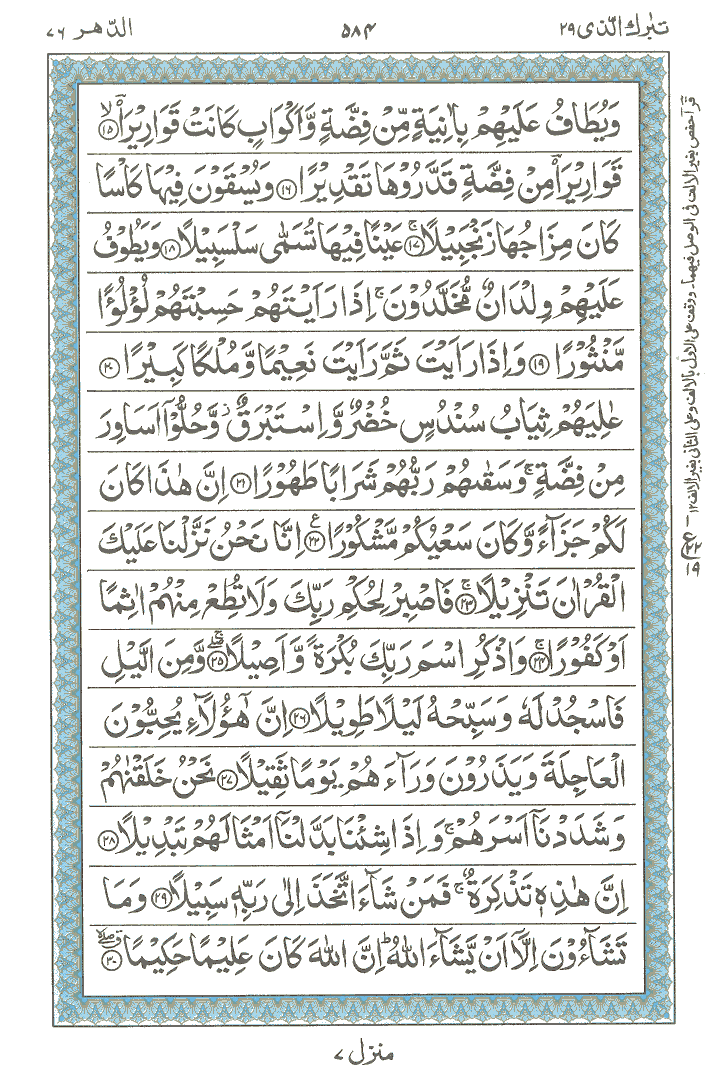 تبٰرك الّذی ٢٩ ٥٨٤ الدّهر ٧٦
وَيُطَافُ عَلَيْهِمْ بِاٰنِيَةٍ مِّنْ فِضَّةٍ وَّاَكْوَابٍ كَانَتْ قَوَارِيْرَا۠ ۙ﴿١٥﴾
قَوَارِيْرَا۠ مِنْ فِضَّةٍ قَدَّرُوْهَا تَقْدِيْرًا ﴿١٦﴾ وَيُسْقَوْنَ فِيْهَا كَاْسًا
كَانَ مِزَاجُهَا زَنْجَبِيْلًا ۚ﴿١٧﴾ عَيْنًا فِيْهَا تُسَمّٰى سَلْسَبِيْلًا ﴿١٨﴾ وَيَطُوْفُ
عَلَيْهِمْ وِلْدَانٌ مُّخَلَّدُوْنَ ۚ اِذَا رَاَيْتَهُمْ حَسِبْتَهُمْ لُؤْلُؤًا
مَّنْثُوْرًا ﴿١٩﴾ وَاِذَا رَاَيْتَ ثَمَّ رَاَيْتَ نَعِيْمًا وَّمُلْكًا كَبِيْرًا ﴿٢٠﴾
عٰلِيَهُمْ ثِيَابُ سُنْدُسٍ خُضْرٌ وَّاِسْتَبْرَقٌ ۡ وَّحُلُّوْۤا اَسَاوِرَ
مِنْ فِضَّةٍ ۚ وَسَقٰىهُمْ رَبُّهُمْ شَرَابًا طَهُوْرًا ﴿٢١﴾ اِنَّ هٰذَا كَانَ
لَكُمْ جَزَآءً وَّكَانَ سَعْيُكُمْ مَّشْكُوْرًا ﴿٢٢﴾ع اِنَّا نَحْنُ نَزَّلْنَا عَلَيْكَ
الْقُرْاٰنَ تَنْزِيْلًا ۚ﴿٢٣﴾ فَاصْبِرْ لِحُكْمِ رَبِّكَ وَلَا تُطِعْ مِنْهُمْ اٰثِمًا
اَوْ كَفُوْرًا ۚ﴿٢٤﴾ وَاذْكُرِ اسْمَ رَبِّكَ بُكْرَةً وَّاَصِيْلًا ۖۚ﴿٢٥﴾ وَمِنَ الَّيْلِ
فَاسْجُدْ لَهٗ وَسَبِّحْهُ لَيْلًا طَوِيْلًا ﴿٢٦﴾ اِنَّ هٰۤؤُلَآءِ يُحِبُّوْنَ
الْعَاجِلَةَ وَيَذَرُوْنَ وَرَآءَهُمْ يَوْمًا ثَقِيْلًا ﴿٢٧﴾ نَحْنُ خَلَقْنٰهُمْ
وَشَدَدْنَاۤ اَسْرَهُمْ ۚ وَاِذَا شِئْنَا بَدَّلْنَاۤ اَمْثَالَهُمْ تَبْدِيْلًا ﴿٢٨﴾
اِنَّ هٰذِهٖ تَذْكِرَةٌ ۚ فَمَنْ شَآءَ اتَّخَذَ اِلٰى رَبِّهٖ سَبِيْلًا ﴿٢٩﴾ وَمَا
تَشَآءُوْنَ اِلَّاۤ اَنْ يَّشَآءَ اللّٰهُ ؕ اِنَّ اللّٰهَ كَانَ عَلِيْمًا حَكِيْمًا ﴿٣٠﴾
قرأ حفص بغير الالف فی الوصل فيهما۔ ووقف علی الاول بالالف وعلی الثانی بغير الالف ١٢
ع ٢٢ ١٩
منزل ٧